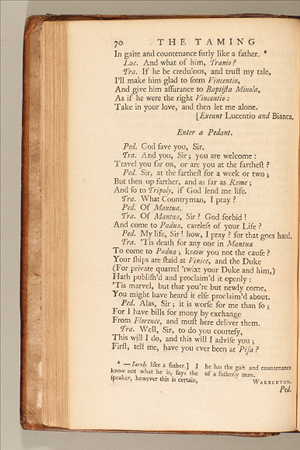 70 THE TAMING
In gaite and countenance ſurly like a father. *
Luc. And what of him, Tranio?
Tra. If he be credulous, and truſt my tale,
I'll make him glad to ſeem Vincentio,
And give him aſſurance to Baptiſta Minola,
As if he were the right Vincentio:
Take in your love, and then let me alone.
[Exeunt Lucentio and Bianca.
Enter a Pedant.
Ped. God ſave you, Sir.
Tra. And you, Sir; you are welcome:
Travel you far on, or are you at the fartheſt?
Ped. Sir, at the fartheſt for a week or two;
But then up farther, and as far as Rome;
And ſo to Tripoly, if God lend me life.
Tra. What Countryman, I pray?
Ped. Of Mantua.
Tra. Of Mantua, Sir? God forbid!
And come to Padua, careleſs of your life?
Ped. My life, Sir! how, I pray? for that goes hard.
Tra. 'Tis death for any one in Mantua
To come to Padua; know you not the cauſe?
Your ſhips are ſtaid at Venice, and the Duke
(For private quarrel 'twixt your Duke and him,)
Hath publiſh'd and proclaim'd it openly:
'Tis marvel, but that you're but newly come,
You might have heard it elſe proclaim'd about.
Ped. Alas, Sir; it is worſe for me than ſo;
For I have bills for mony by exchange
From Florence, and muſt here deliver them.
Tra. Well, Sir, to do you courteſy,
This will I do, and this will I adviſe you;
Firſt, tell me, have you ever been at Piſa?
* — Surely like a father.] I
know not what he is, ſays the
ſpeaker, however this is certain,
he has the gait and countenance
of a fatherly man.
WARBURTON.
Ped.